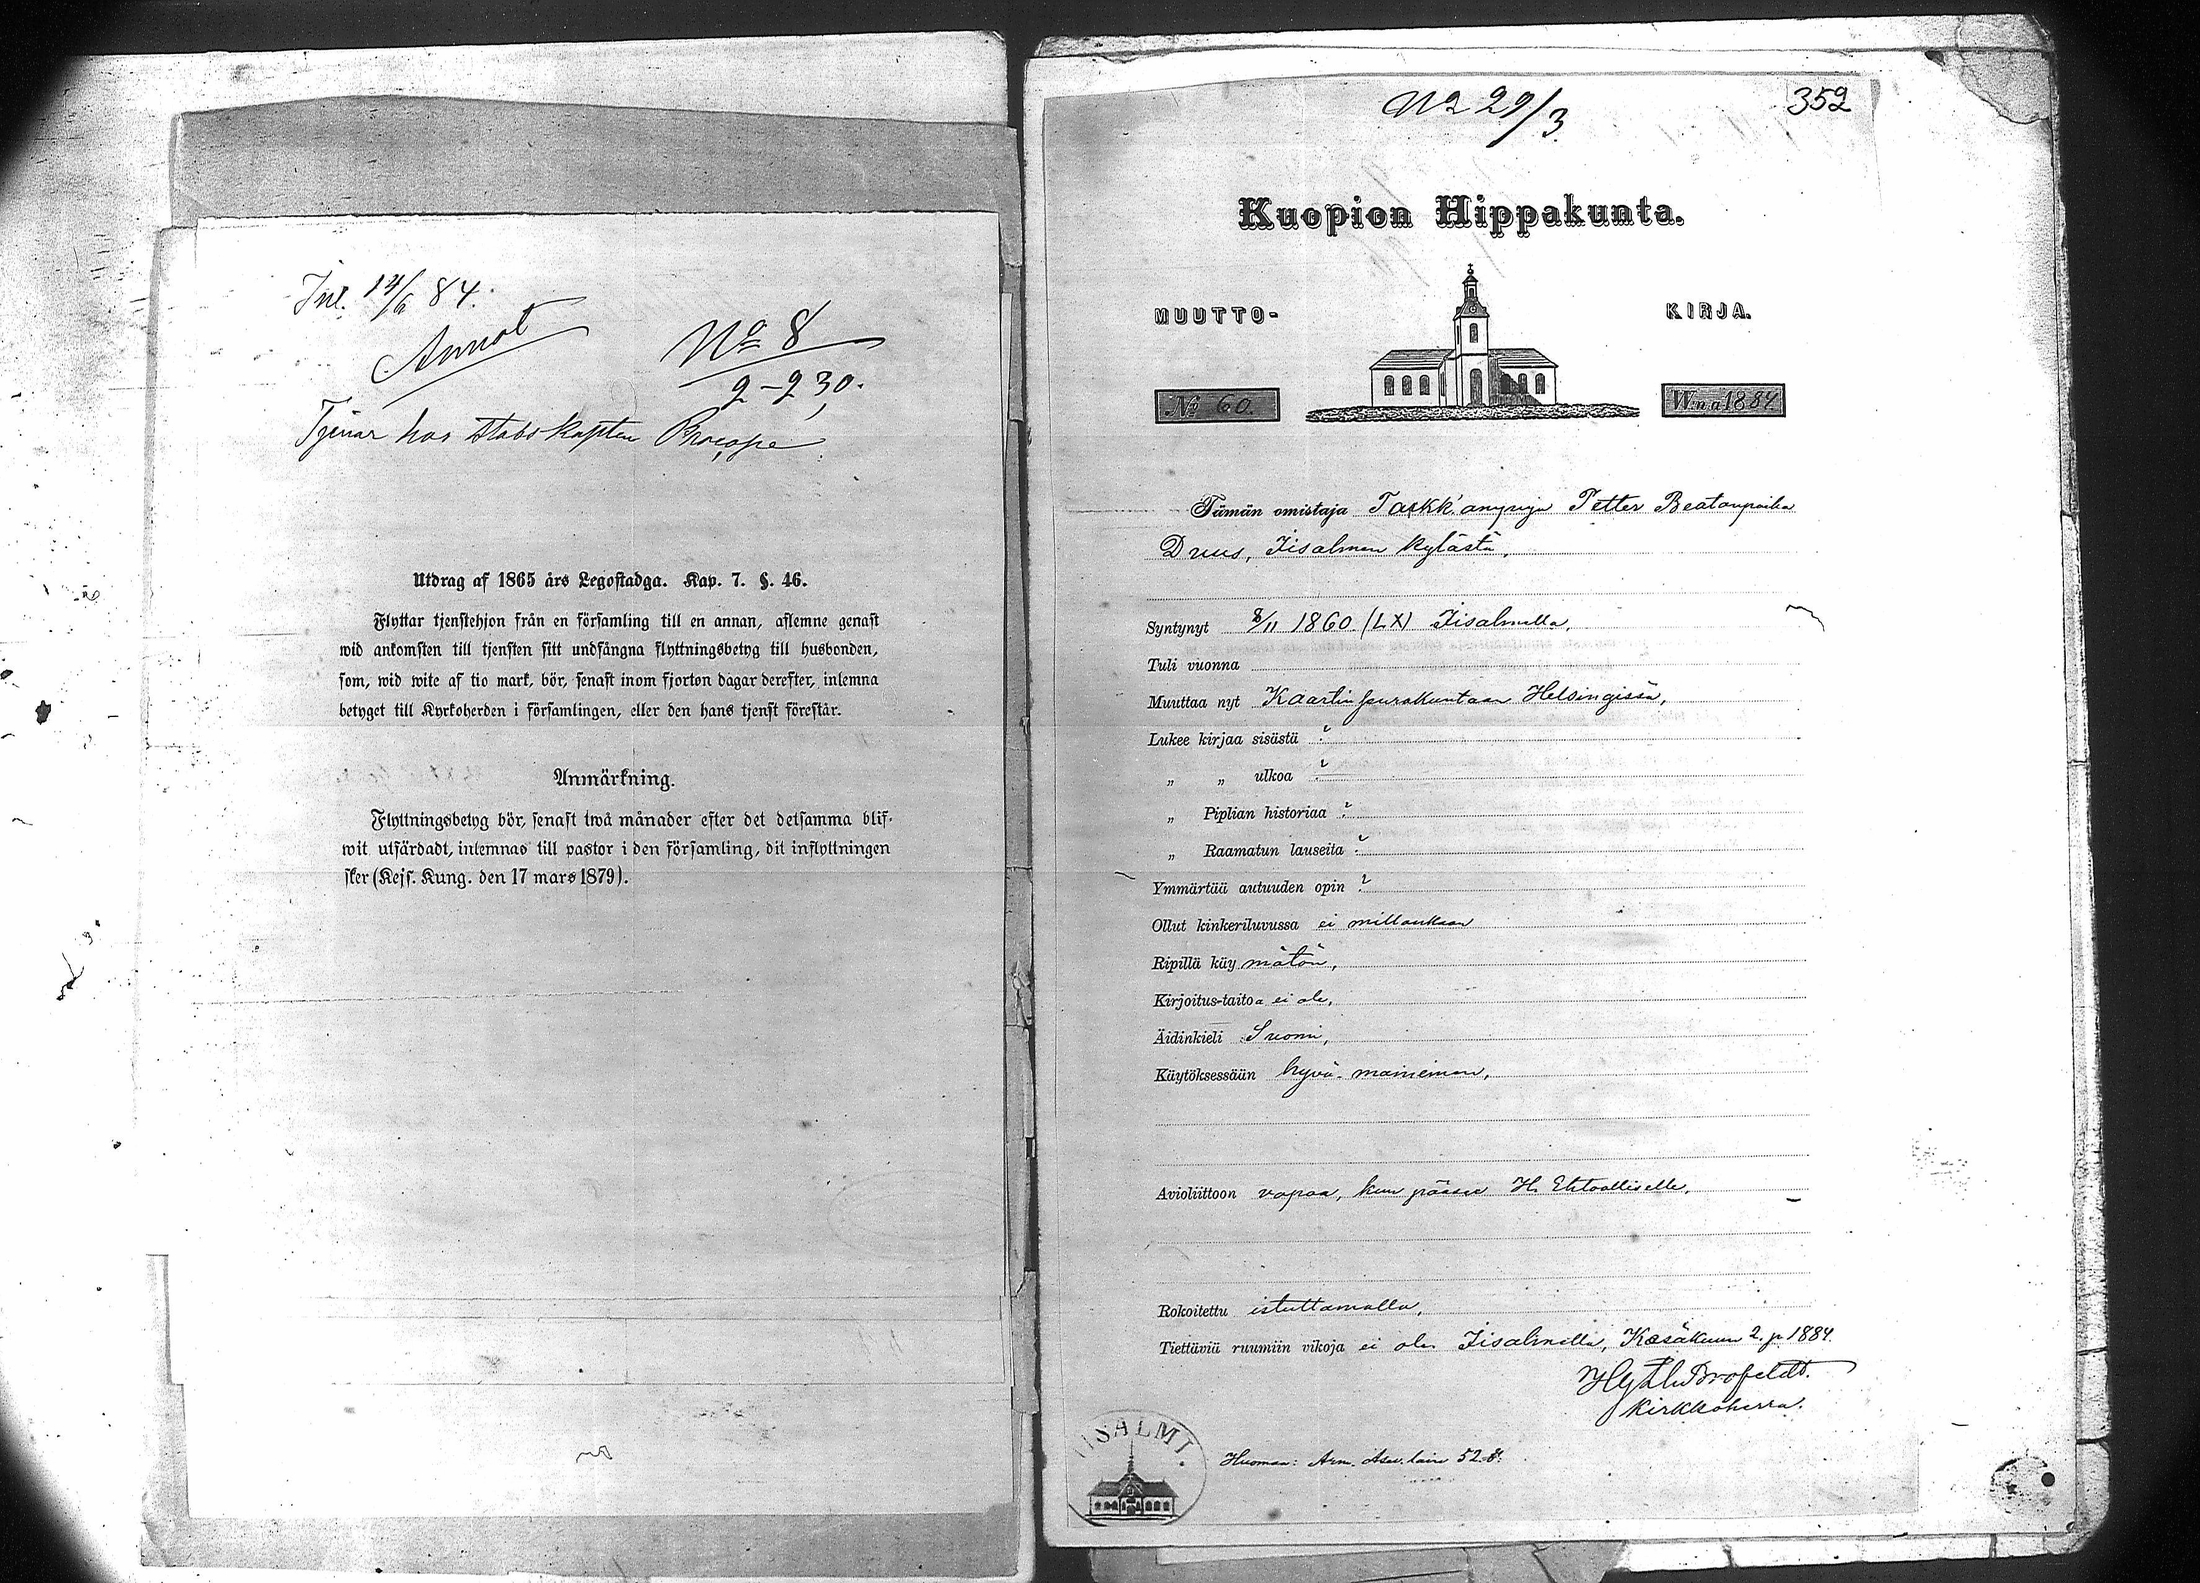 Inl. 14/6 84.
Annot
No 8
2-230.
Tjenar hos stabskapten Procopé
Utdrag af 1865 års Legostadga. Kap. 7. §. 46.
Flyttar tjenstehjon från en församling till en annan, aflemne genast
wid ankomsten till tjensten sitt undfångna flyttningsbetyg till husbonden,
som, wid wite af tio mark, bör, senast inom fjorton dagar derefter, inlemna
betyget till Kyrkoherden i församlingen, eller den hans tjenst förestår.
Anmärkning.
Flyttningsbetyg bör, senast twå månader efter det detsamma blif-
wit utfärdadt, inlemnas till pastor i den församling, dit inflyttningen
sker (Kejs. Kung. den 17 mars 1879).
No 29/3
352
Kuopion Hippakunta.
MUUTTO- KIRJA.
No 60. W:na 1884
Tämän omistaja Tarkk'ampuja Petter Beatanpoika
Druus, Iisalmen kylästä,
Syntynyt 8/11 1860 (LX) Iisalmella,
Tuli vuonna
Muuttaa nyt Kaartin seurakuntaan Helsingissä,
Lukee kirjaa sisästä ?
„ „ ulkoa ?
„ Piplian historiaa ?
„ Raamatun lauseita ?
Ymmärtää autuuden opin ?
Ollut kinkeriluvussa ei milloinkaan
Ripillä käymätön,
Kirjoitus-taitoa ei ole,
Äidinkieli Suomi,
Käytöksessään hyvä-maineinen,
Avioliittoon vapaa, kun pääsee H. Ehtoolliselle,
Rokoitettu istuttamalla,
Tiettäviä ruumiin vikoja ei ole. Iisalmella, Kesäkuun 2. p. 1884.
Brofeldt.
Kirkkoherra.
IISALMI.
Huomaa: Arm. Asev. lain 52 §.